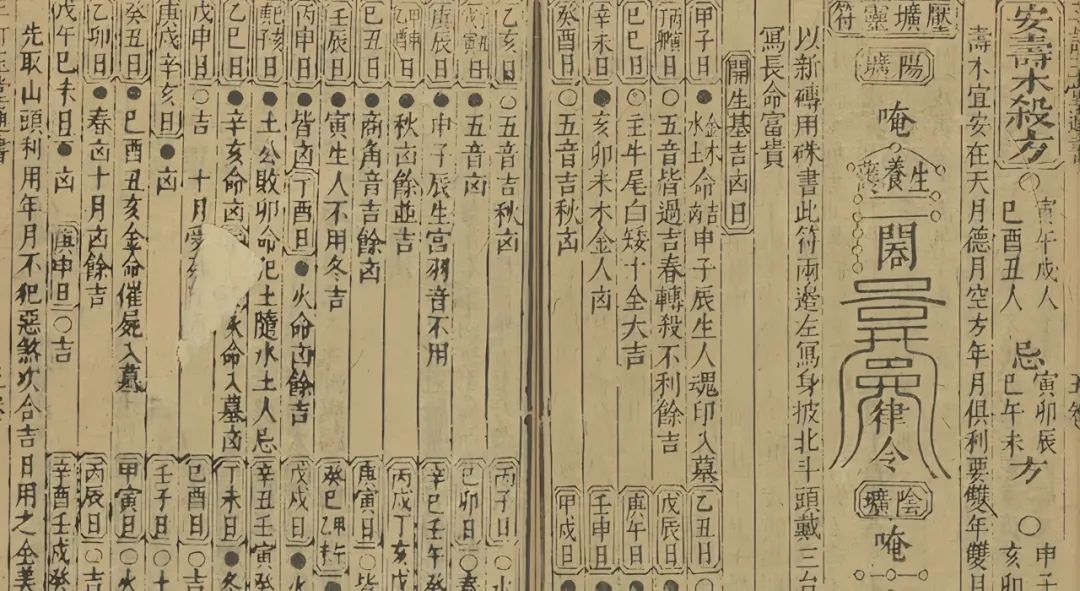 安壽木殺方
○寅午戌人
巳酉丑人
忌
寅卯辰
巳午未
方
○申子
亥卯
壽木宜安在天月德月空方年月俱利要雙年雙月
壓壙靈符
陽壙
唵
生養
律令
陰壙
唵
以新磚用硃書此符兩邊左寫身披北斗頭戴三台
寫長命富貴
開生基吉凶日
甲子日●金木吉水土命凶申子辰生人魂印入墓
乙丑日○
丙寅丁卯日○五音皆過吉春轉殺不利餘吉
戊辰日●
己巳日○主牛尾白矮十全大吉
庚午日●
辛未日●亥卯未木金人凶
壬申日●
癸酉日○五音吉秋凶
甲戌日●
乙亥日○五音吉秋凶
丙子日○水
戊寅日●五音凶
己卯日○春
庚辰日●申子辰生宮羽音不用
辛巳壬午癸
甲申乙酉日●秋凶餘並吉
丙戌丁亥戊
己丑日●商角音吉餘凶
庚寅日○皆
壬辰日●寅生人不用冬吉
癸巳甲午
丙申日●皆凶丁酉日●火命凶餘吉
戊戌日●火
日●土公敗卯命犯土隨水土人忌
辛丑壬寅癸
乙巳日●辛亥命凶 命入墓凶
丁未日●冬
戊申日○吉 十月
己酉日○吉
庚戌辛亥日●凶
壬子日○土
癸丑日●巳酉丑亥金命催屍入墓
甲寅日○火
乙卯日●春凶十月凶餘吉
丙辰日○吉
戊午己未日●凶庚申日○吉
辛酉壬戌癸
先取山頭利用年月不犯惡煞次合吉日用之全美